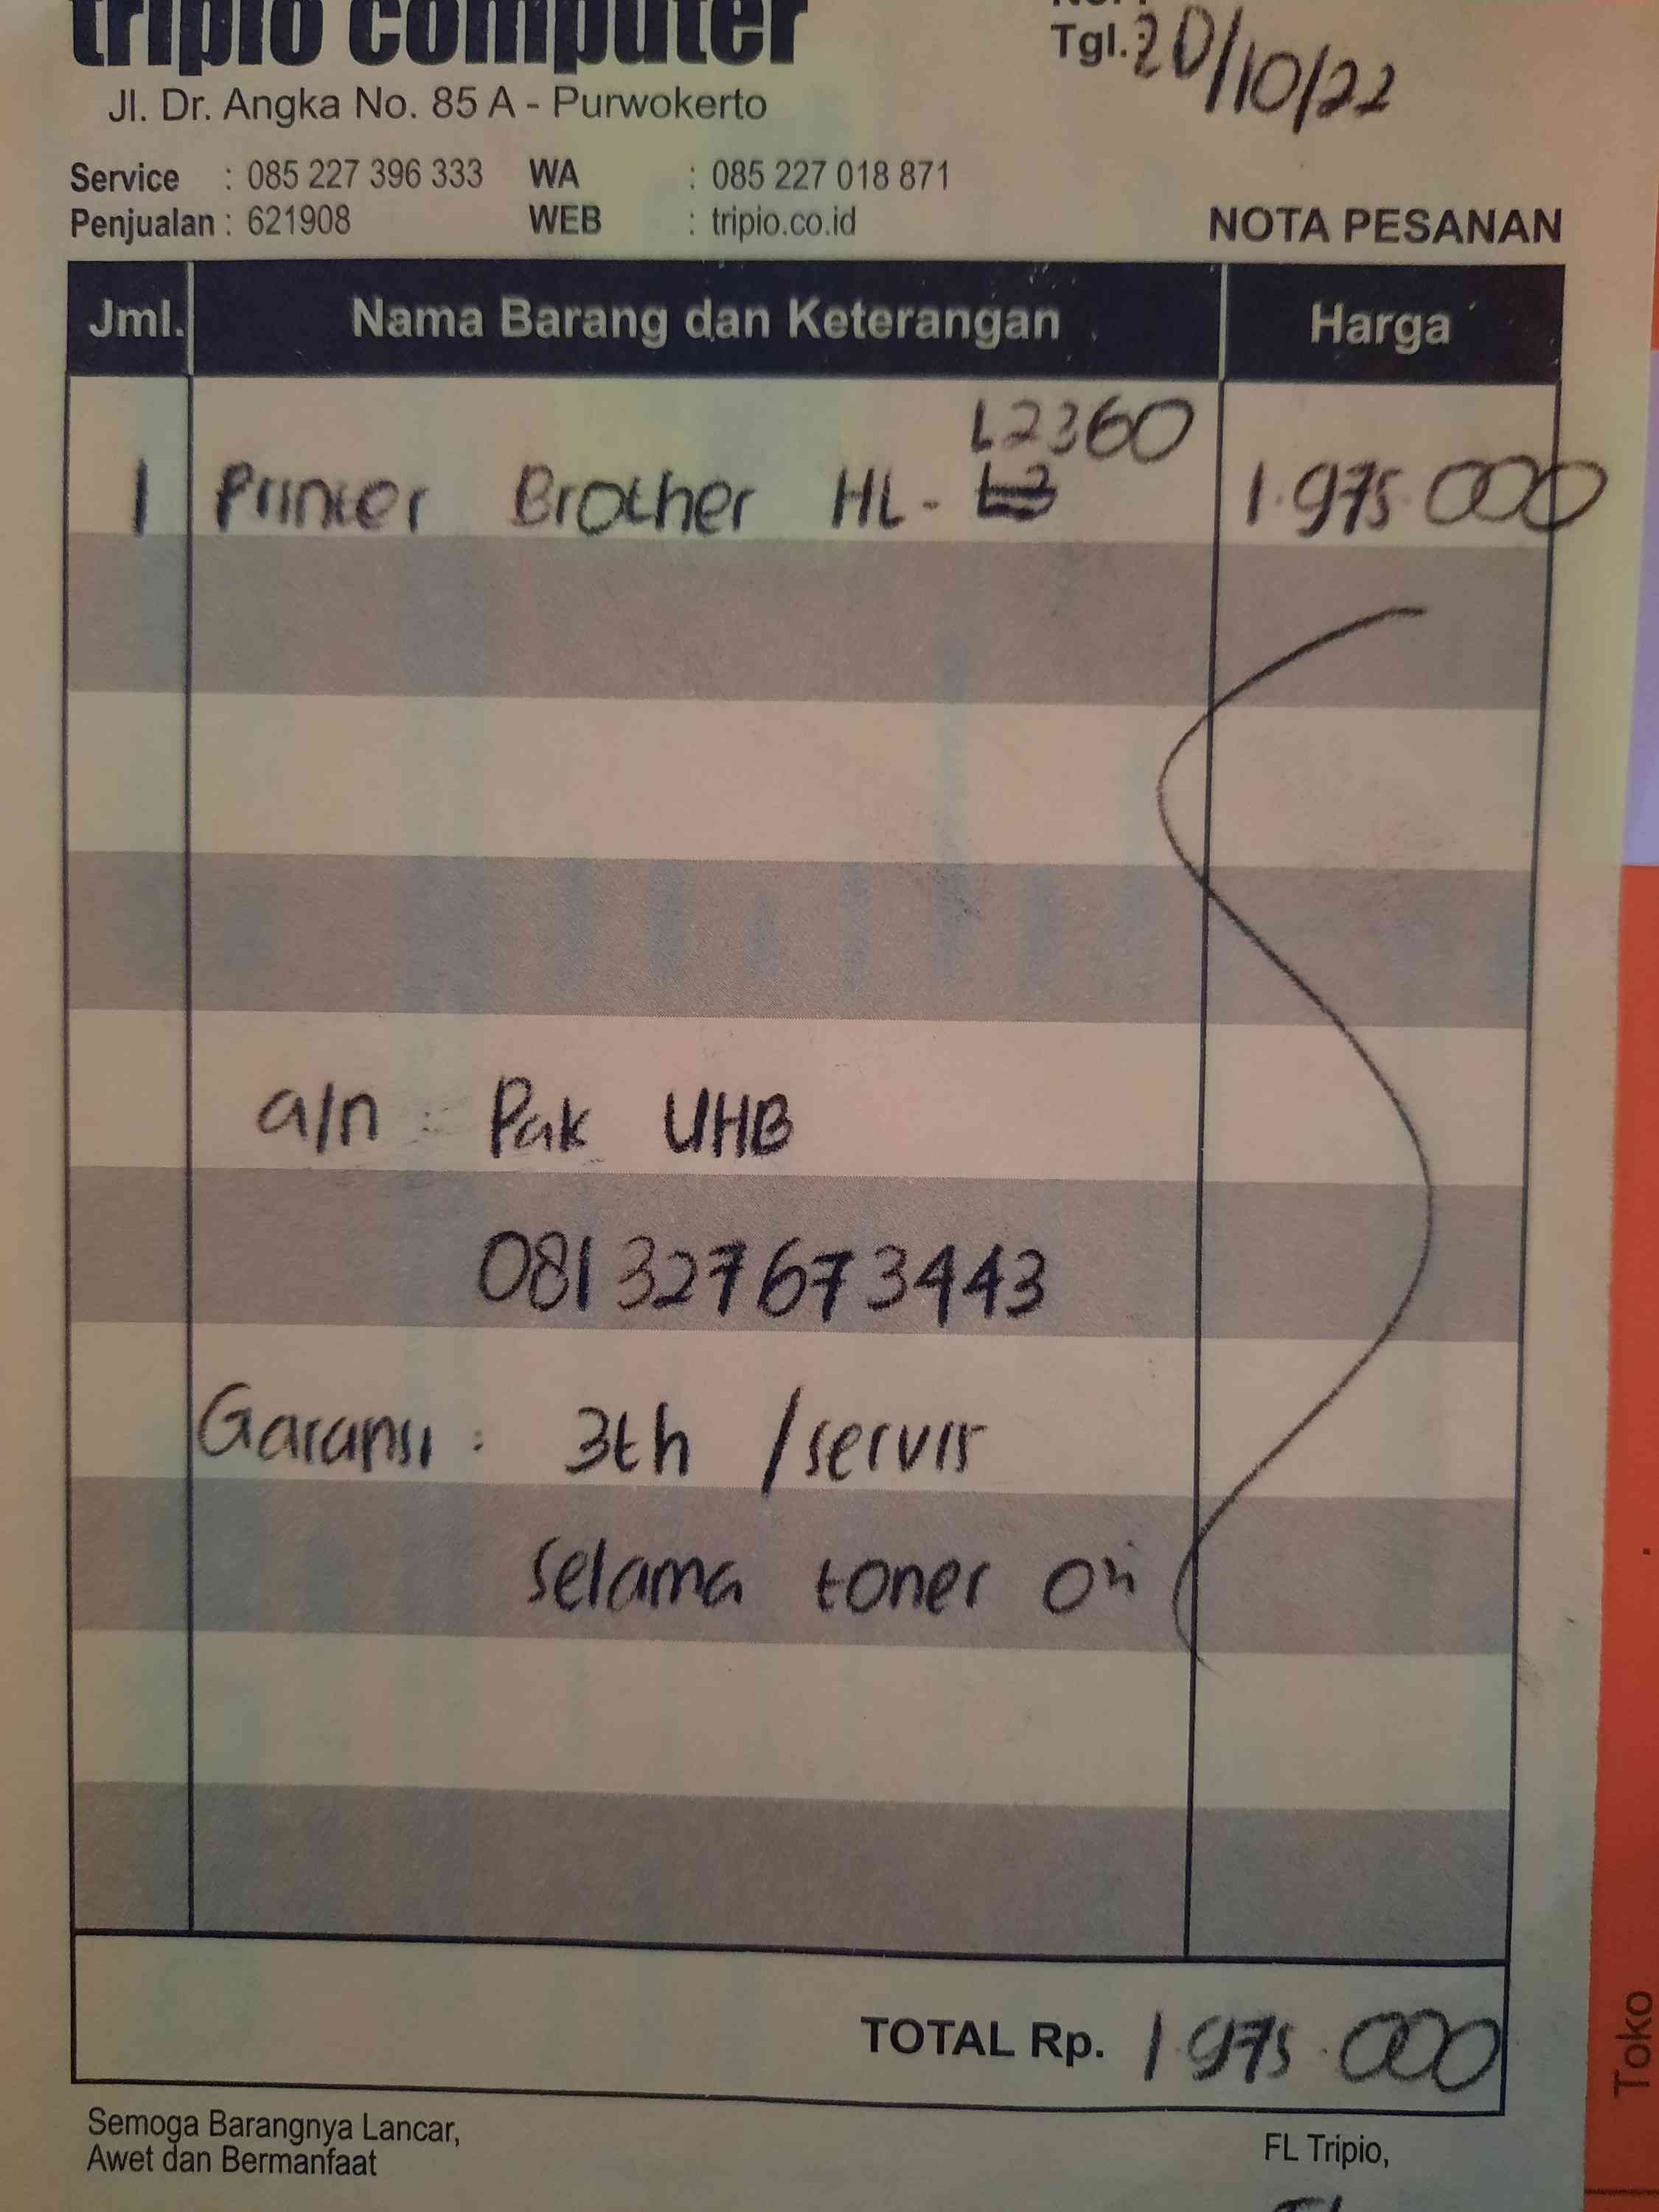 tripio computer
No. :
Tgl. : 20/10/22
Jl. Dr. Angka No. 85 A - Purwokerto
Service : 085 227 396 333 WA : 085 227 018 871
Penjualan : 621908 WEB : tripio.co.id
NOTA PESANAN
Jml. Nama Barang dan Keterangan Harga
L2360
1 Printer Brother HL - 1.975.000
a/n : Pak UHB
081327673443
Garansi : 3th /servis
selama toner ori
TOTAL Rp. 1.975.000
Semoga Barangnya Lancar,
Awet dan Bermanfaat
FL Tripio,
Toko